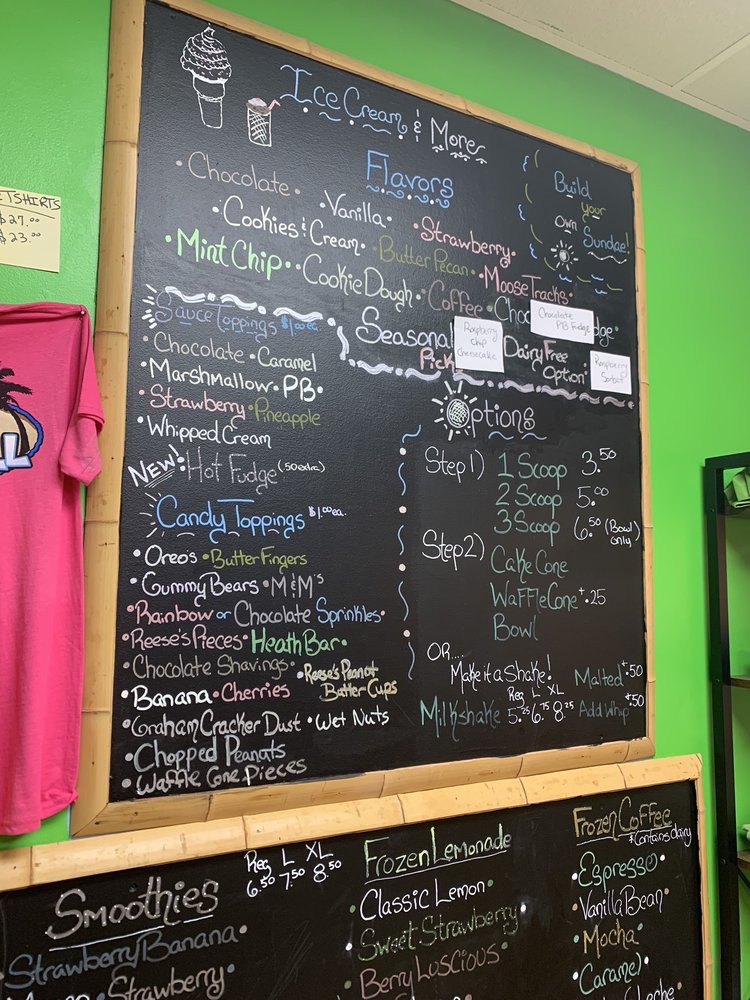 TSHIRTS
$27.00
$23.00
Ice Cream & More
Flavors
• Chocolate • Vanilla •
• Cookies & Cream • Strawberry •
• Mint Chip • • Butter Pecan •
• Cookie Dough • Moose Tracks •
• Coffee • Choc
Chocolate
PB Fudge
dge •
Build
your
own
Sundae!
Seasonal
Pick
Raspberry
Chip
Cheesecake
Dairy Free
Option
Raspberry
Sorbet
Sauce Toppings $1.00 ea.
• Chocolate • Caramel
• Marshmallow • PB •
• Strawberry • Pineapple
• Whipped Cream
NEW! • Hot Fudge (.50 extra)
Candy Toppings $1.00 ea.
• Oreo's • Butter Fingers
• Gummy Bears • M&M's
• Rainbow or Chocolate Sprinkles •
• Reese's Pieces • Heath Bar •
• Chocolate Shavings • • Reese's Peanut
Butter Cups
• Banana • Cherries
• Graham Cracker Dust • Wet Nuts
• Chopped Peanuts
• Waffle Cone Pieces
Options
Step 1) 1 Scoop 3.50
2 Scoop 5.00
3 Scoop 6.50 (Bowl only)
Step 2) Cake Cone
Waffle Cone +.25
Bowl
Or....
Make it a Shake!
Reg L XL
Milkshake 5.25 6.75 8.25
Malted +.50
Add Whip +.50
Smoothies
Reg L XL
6.50 7.50 8.50
• Strawberry Banana •
• Strawberry •
Frozen Lemonade
Classic Lemon •
• Sweet Strawberry •
• Berry Luscious •
Frozen Coffee
*Contains dairy
• Espresso •
• Vanilla Bean •
• Mocha •
• Caramel •